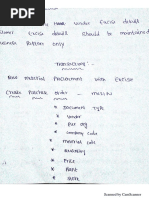 have vendor Excise details
Excise details should be maintained
Business Partner only
Transactions :-
Raw material Procurement with Excise
Create Purchase order
* Document type
* Vendor
* Pur org
* Company code
* material code
* Quantity
* Price
* Plant
Scanned by CamScanner